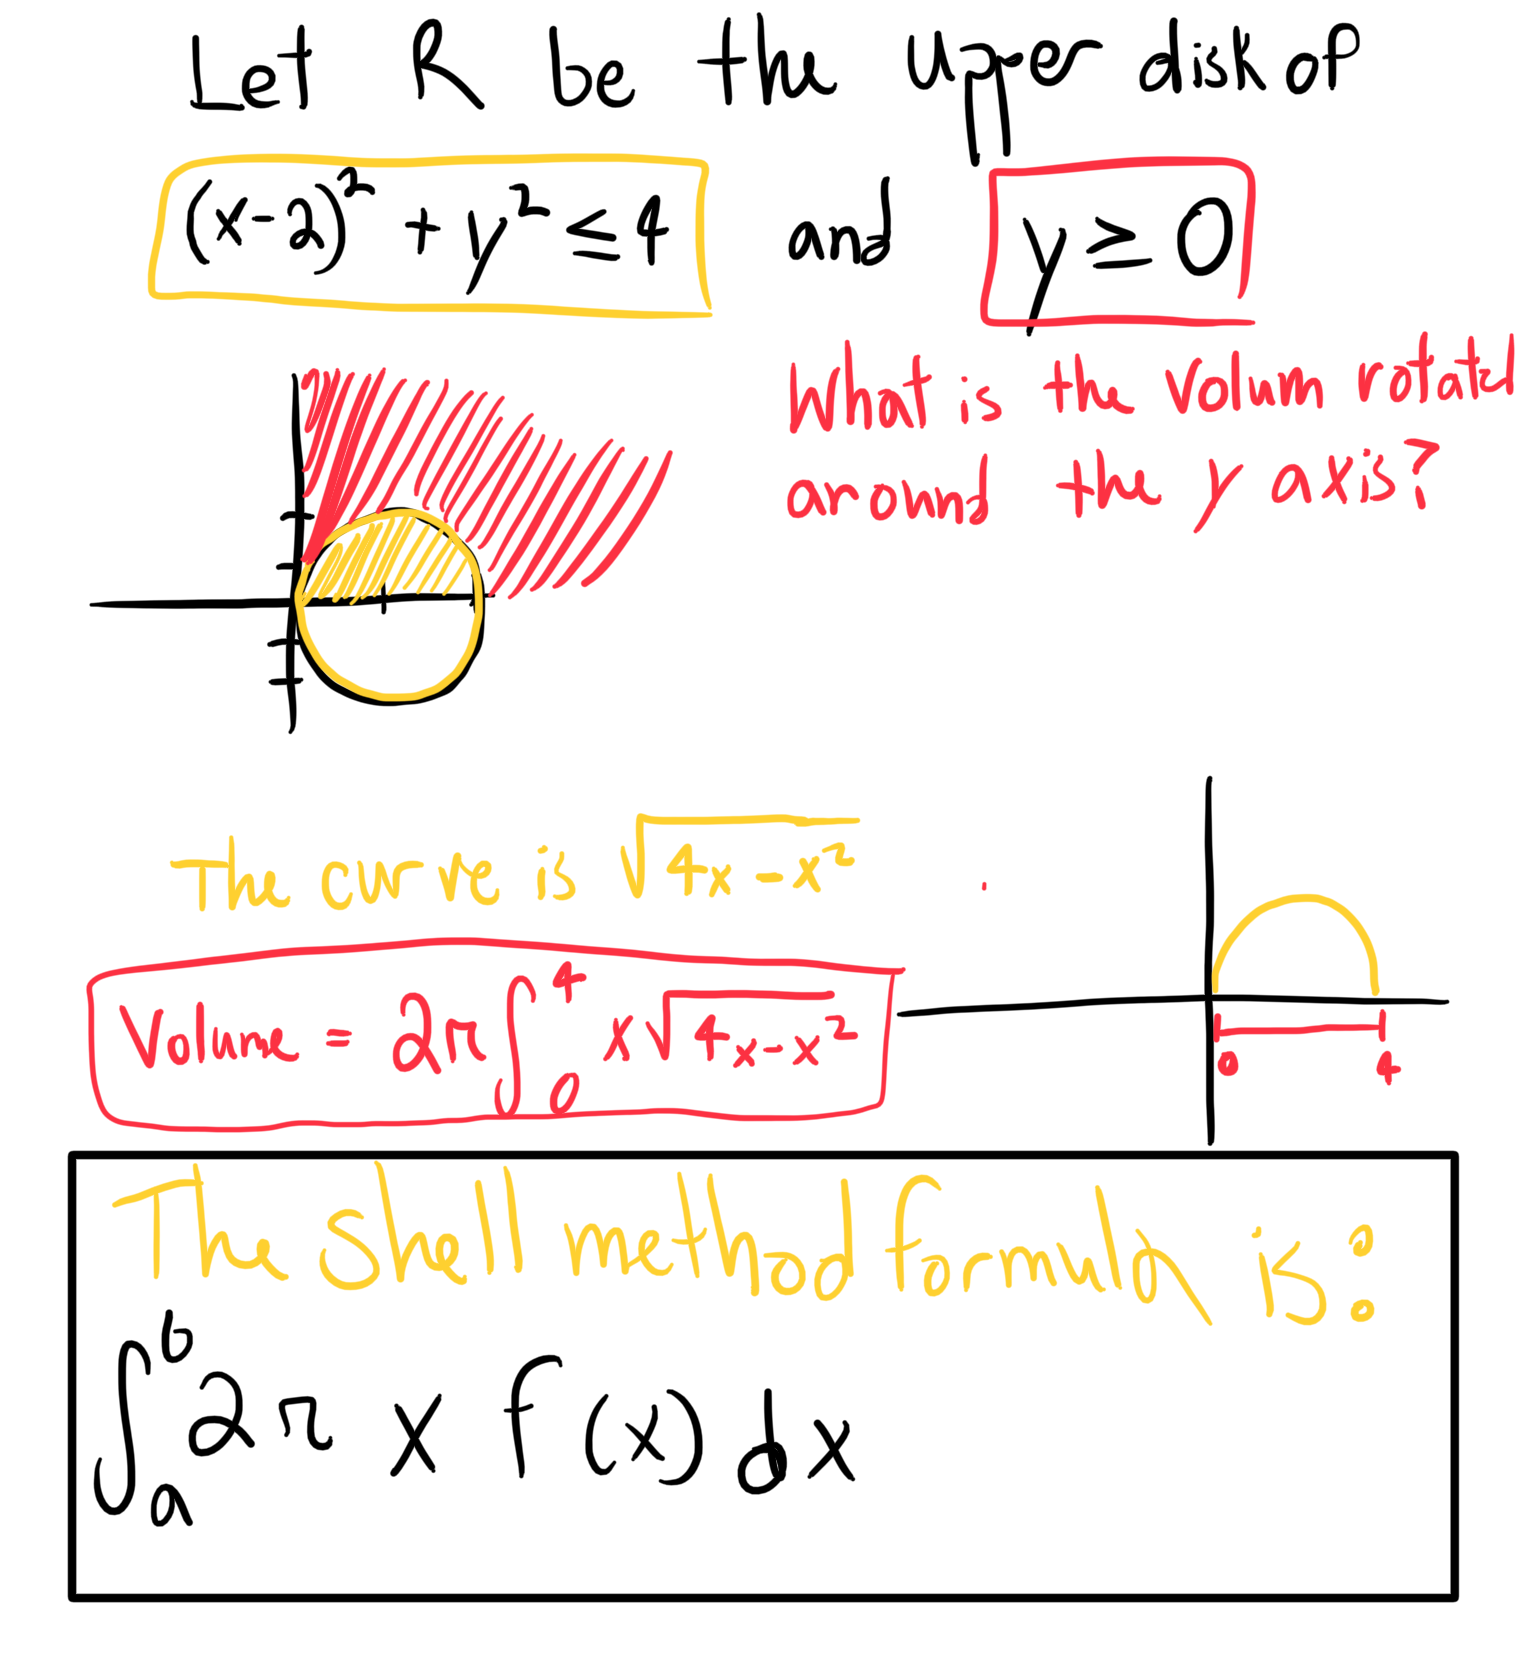 Let R be the upper disk of
(x-2)² + y² ≤ 4 and y ≥ 0
What is the volum rotated
around the y axis?
The curve is √(4x-x²)
Volume = 2π∫₀⁴ x√(4x-x²)
0 4
The shell method formula is:
∫ₐᵇ 2π x f(x) dx